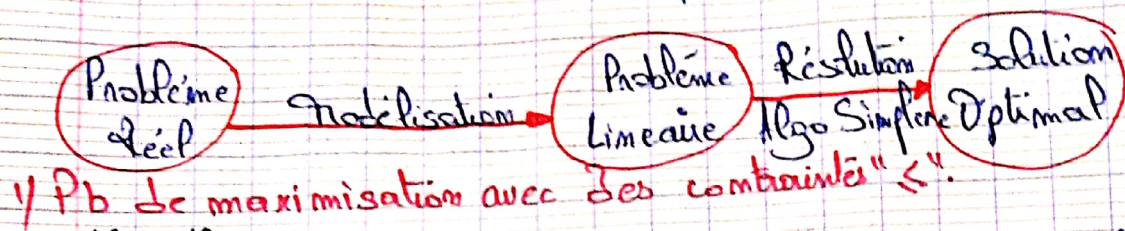 Problème
Réel
Modélisation
Problème
Linéaire
Résolution
Algo Simplexe
Solution
Optimal
1/ Pb de maximisation avec des contraintes "≤".